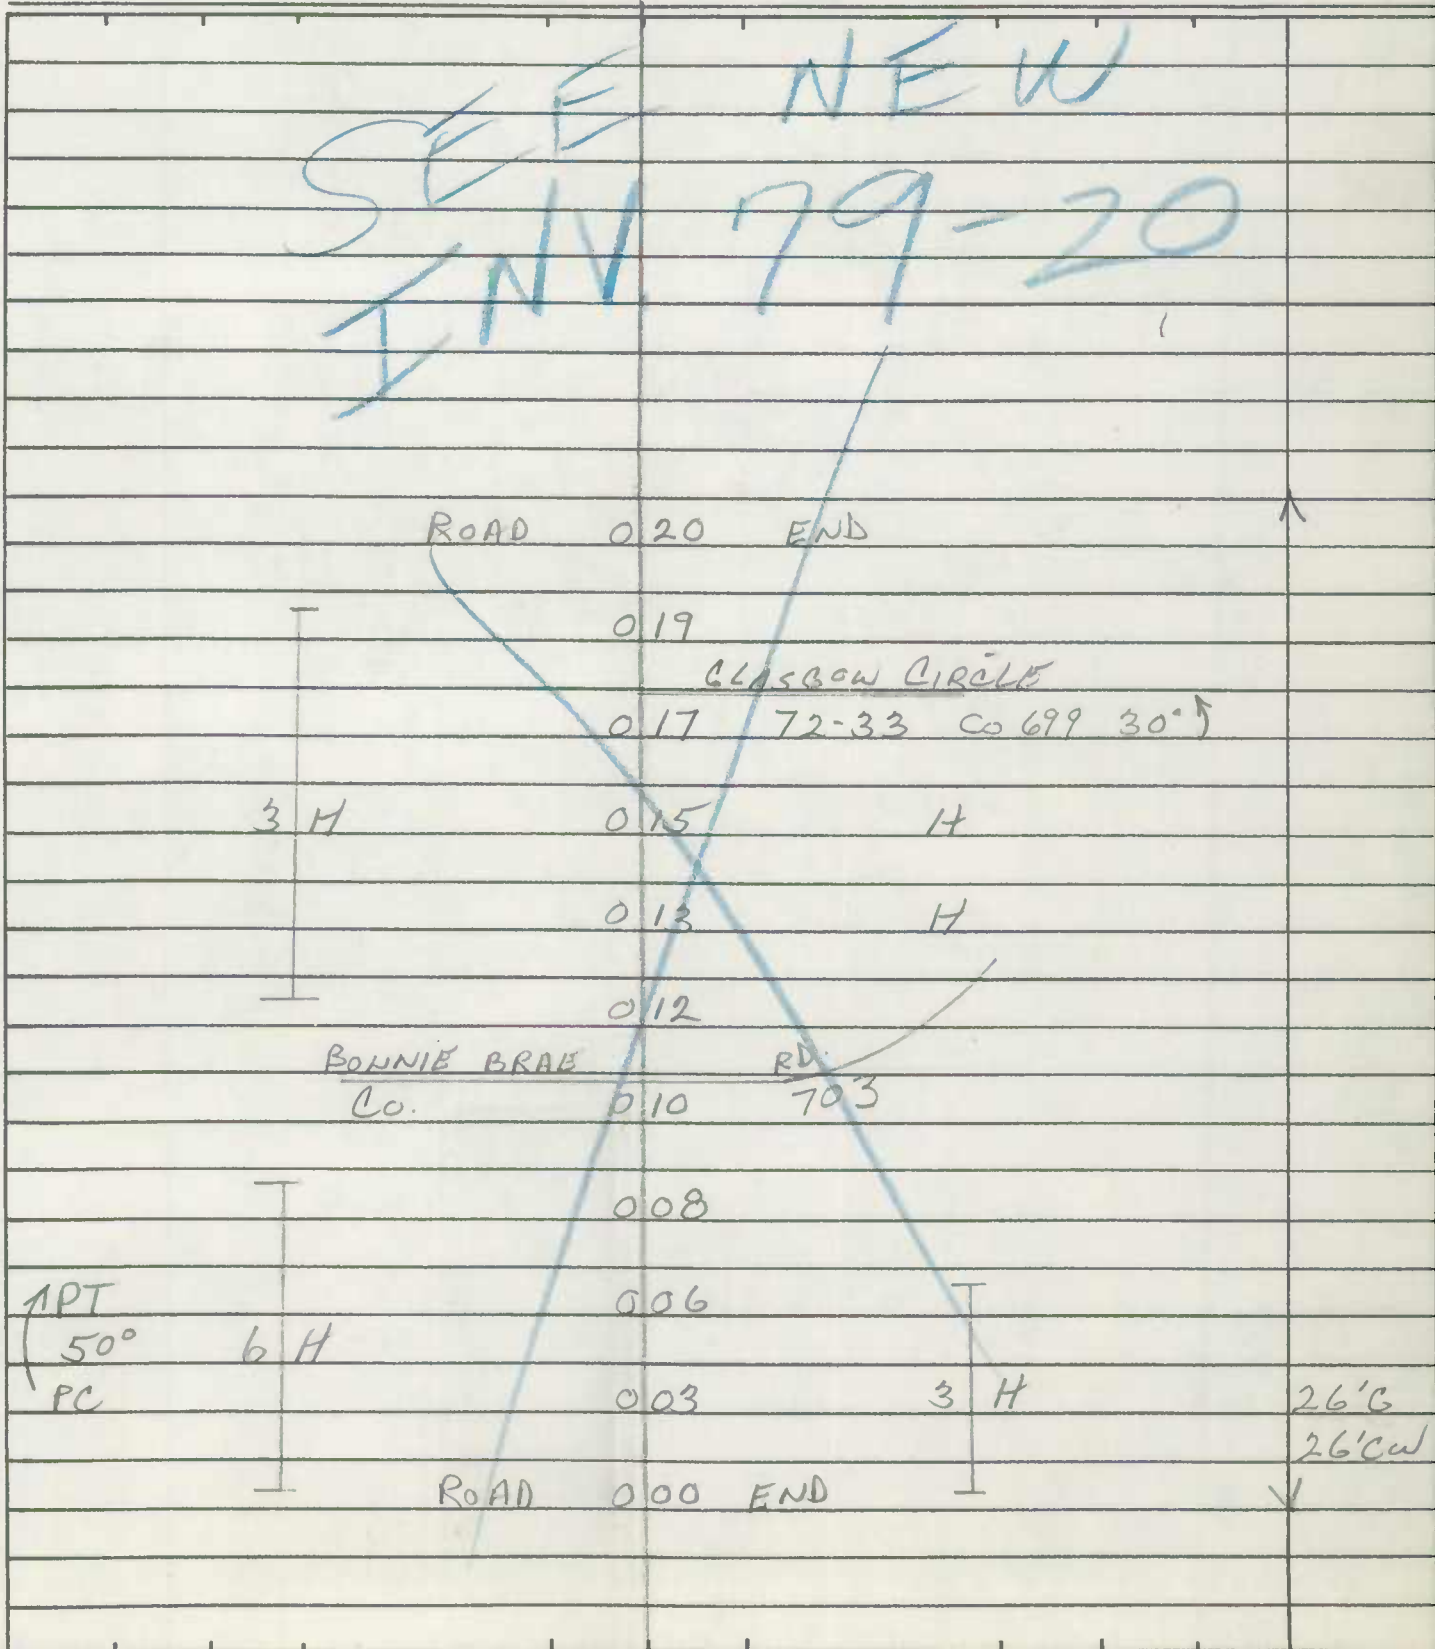 SEE NEW
INV 79-20
ROAD 0 20 END
0 19
GLASGOW CIRCLE
0 17 72-33 CO 699 30°
3 H 0 15 H
0 13 H
0 12
BONNIE BRAE RD.
Co. 0 10 703
0 08
PT 0 06
50° 6 H
PC 0 03 3 H 26'G
26'CW
ROAD 0 00 END